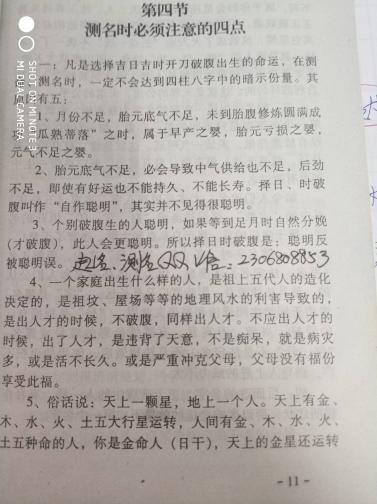 第四节
测名时必须注意的四点
一：凡是选择吉日吉时开刀破腹出生的命运，在测
测名时，一定不会达到四柱八字中的暗示份量。其
有五：
1、月份不足，胎元底气不足，未到胎腹修炼圆满成
“瓜熟蒂落”之时，属于早产之婴，胎元亏损之婴，
元气不足之婴。
2、胎元底气不足，必会导致中气供给也不足，后劲
不足，即使有好运也不能持久、不能长寿。择日、时破
腹叫作“自作聪明”，其实并不见得很聪明。
3、个别破腹生的人聪明，如果等到足月时自然分娩
（才破腹），此人会更聪明。所以择日时破腹是：聪明反
被聪明误。
起名、测名QQ V信：2306808853
4、一个家庭出生什么样的人，是祖上五代人的造化
决定的，是祖坟、屋场等等的地理风水的利害导致的，
是出人才的时候，不破腹，同样出人才。不应出人才的
时候，出了人才，是违背了天意，不是痴呆，就是病灾
多，或是活不长久。或是严重冲克父母，父母没有福份
享受此福。
5、俗话说：天上一颗星，地上一个人。天上有金、
木、水、火、土五大行星运转，人间有金、木、水、火、
土五种命的人，你是金命人（日干），天上的金星还运转
-11-
SHOT ON MI NOTE 3
MI DUAL CAMERA